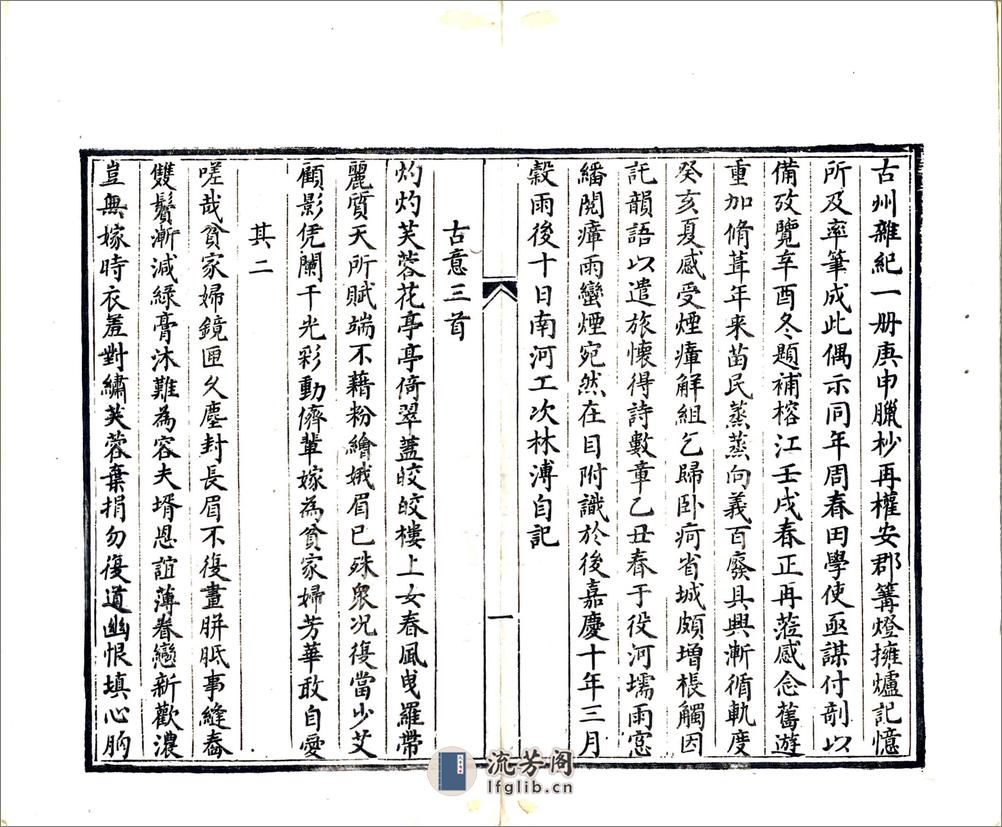 古州雜紀一册庚申臘杪再權安郡篝燈擁爐記憶
所及率筆成此偶示同年周春田學使亟謀付剞以
備攷覽辛酉冬題補榕江壬戌春正再蒞感念舊遊
重加脩葺年來苗民蒸蒸向義百廢具興漸循軌度
癸亥夏感受煙瘴解組乞歸卧疴省城頗增棖觸因
託韻語以遣旅懷得詩數章乙丑春于役河壖雨窓
繙閱瘴雨蠻煙宛然在目附識於後嘉慶十年三月
穀雨後十日南河工次林溥自記
一
古意三首
灼灼芙蓉花亭亭倚翠蓋皎皎樓上女春風曳羅帶
麗質天所賦端不藉粉繪娥眉已殊衆况復當少艾
顧影凭闌干光彩動儕輩嫁為貧家婦芳華敢自愛
其二
嗟哉貧家婦鏡匣久塵封長眉不復畫胼胝事縫舂
雙鬢漸減綠膏沐難為容夫壻恩誼薄眷戀新歡濃
豈無嫁時衣羞對繡芙蓉棄捐勿復道幽恨填心胸
流芳阁
lfglib.cn